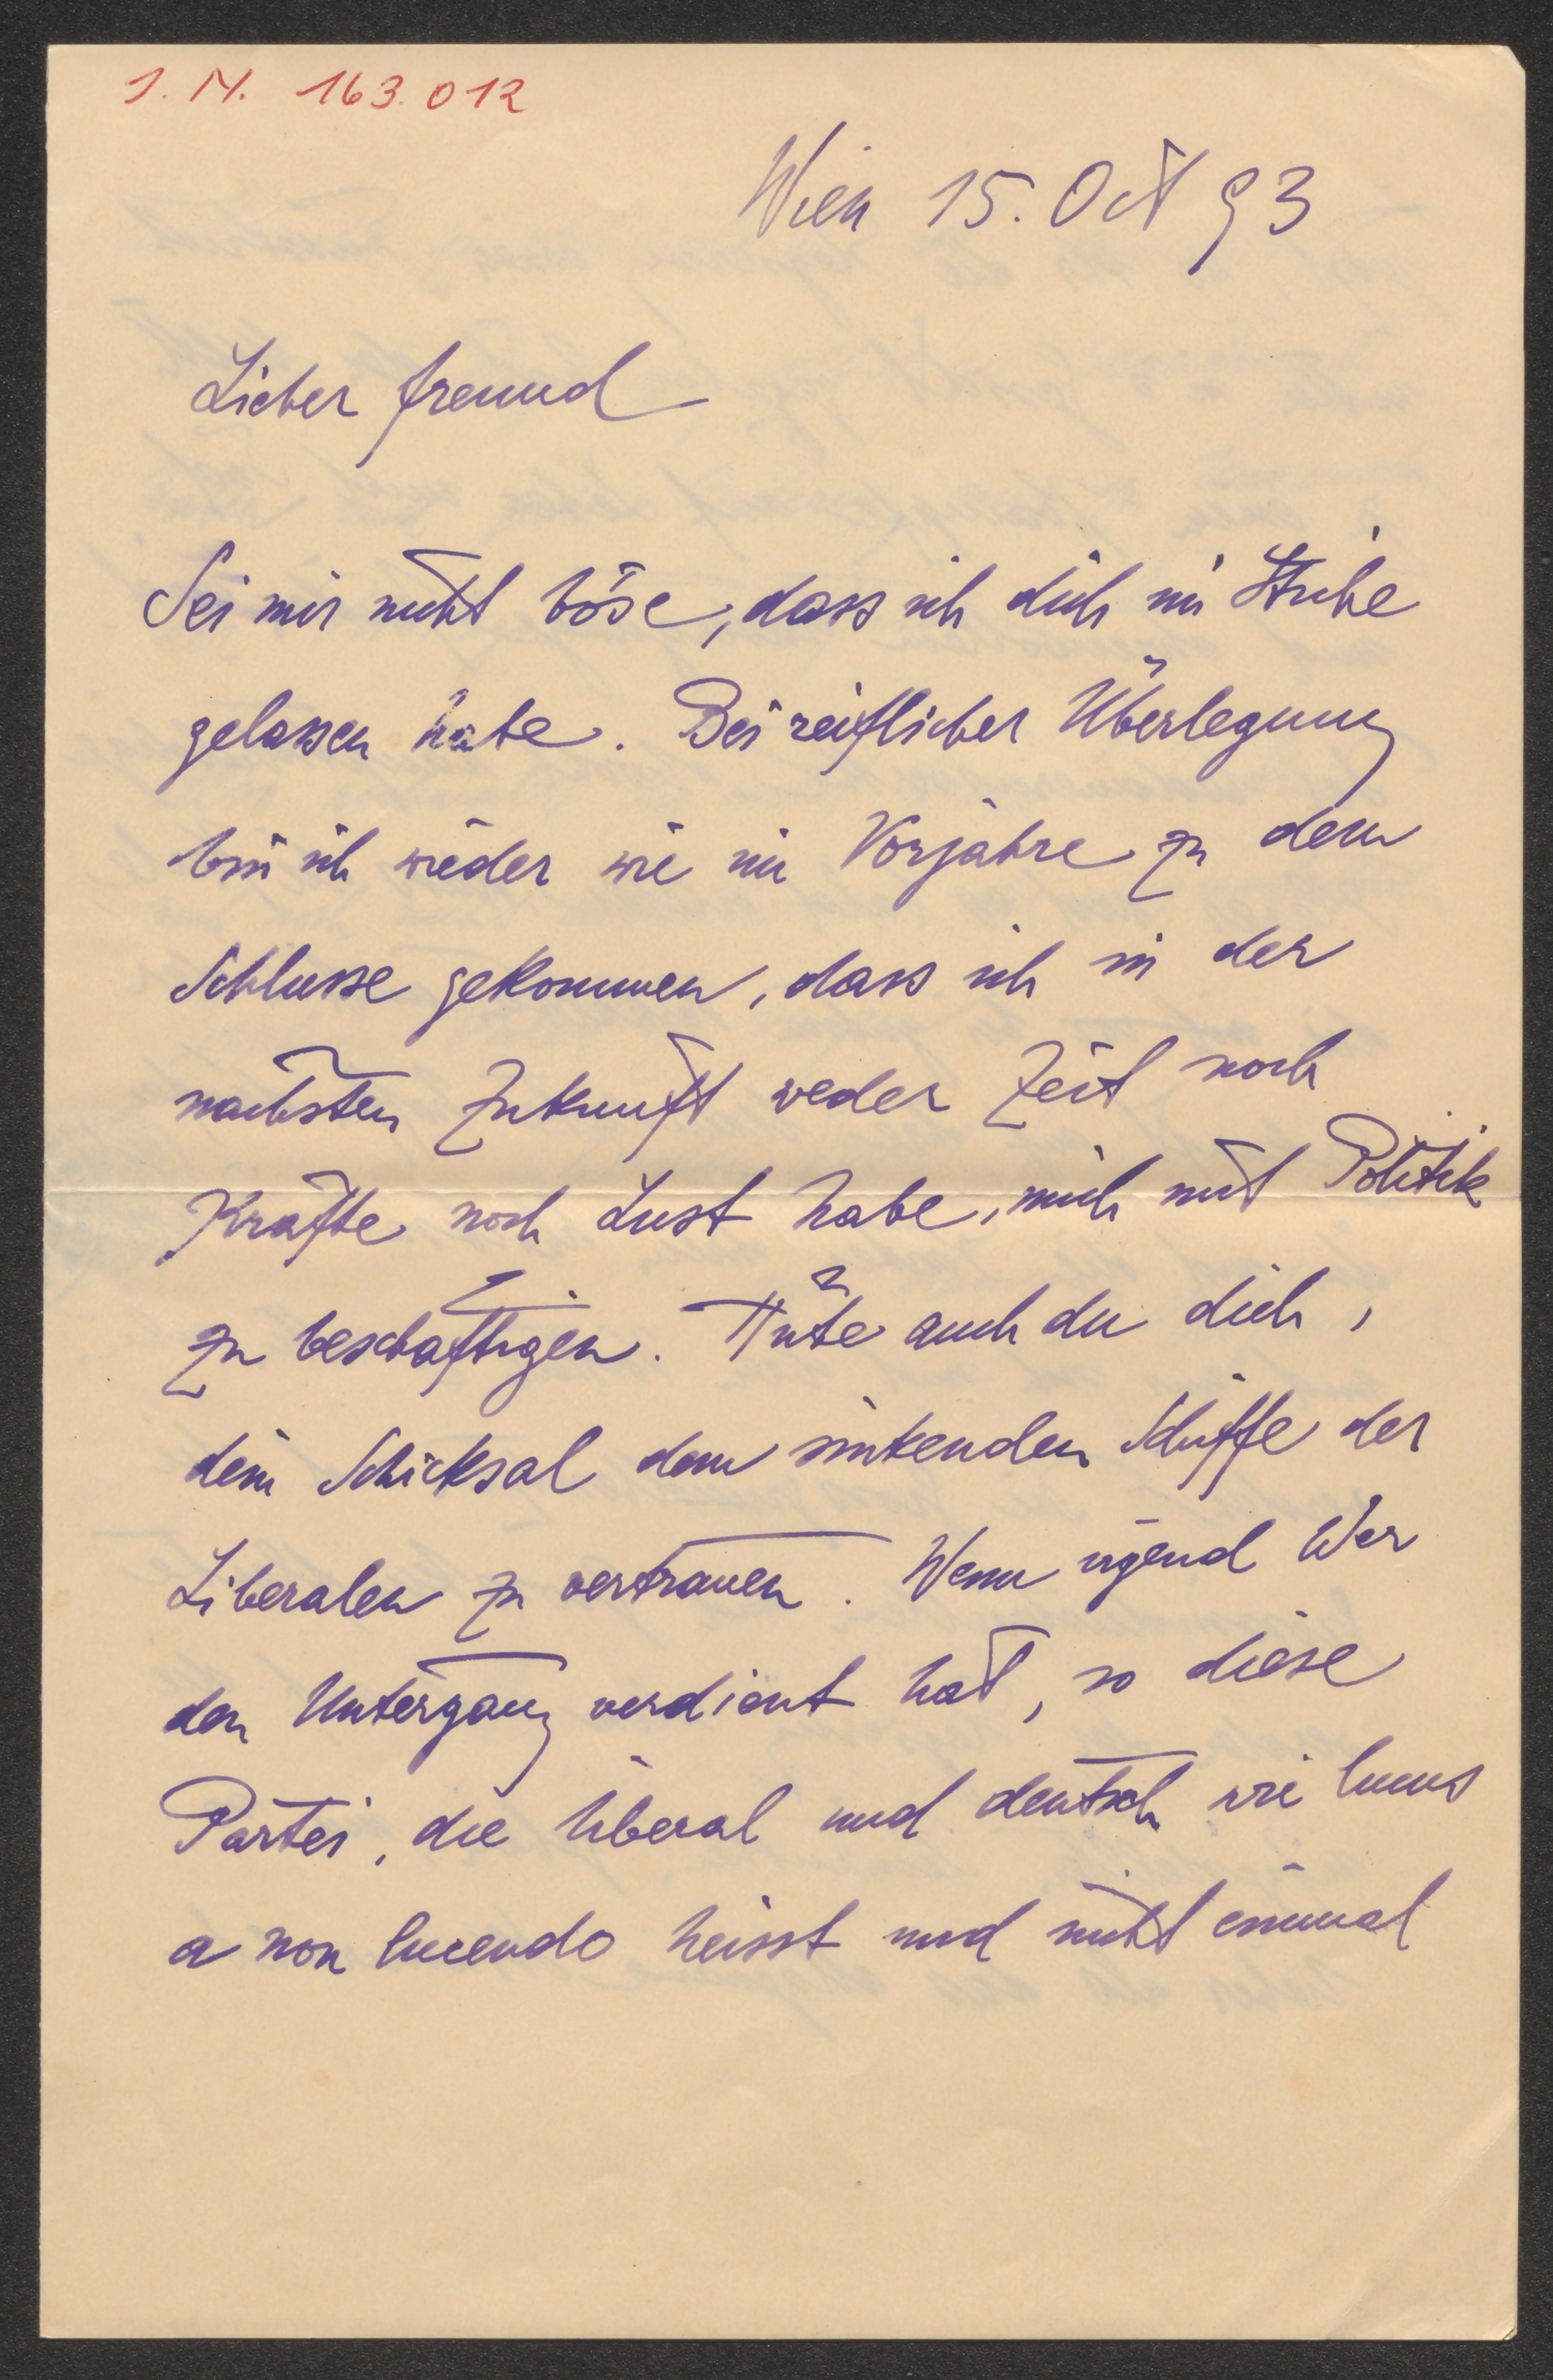 J. N. 163.012
Wien 15. Oct 93
Lieber Freund
Sei mir nicht böse, dass ich dich im Stiche
gelassen habe. Bei reiflicher Überlegung
bin ich wieder wie im Vorjahre zu dem
Schlusse gekommen, dass ich in der
nächsten Zukunft weder Zeit noch
Kräfte noch Lust habe, mich mit Politik
zu beschäftigen. Hüte auch du dich,
dein Schicksal dem sinkenden Schiffe der
Liberalen zu vertrauen. Wenn irgend Wer
den Untergang verdient hat, so diese
Partei, die liberal und deutsch wie lucus
a non lucendo heisst und nicht einmal